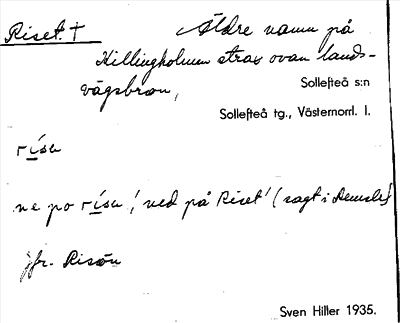 Riset † Äldre namn på
Killingholmen strax ovan lands-
vägsbron,
Sollefteå s:n
Sollefteå tg., Västernorrl. l.
rísu
ne po rísu 'ned på Riset' (sagt i
jfr. Risön
Sven Hiller 1935.